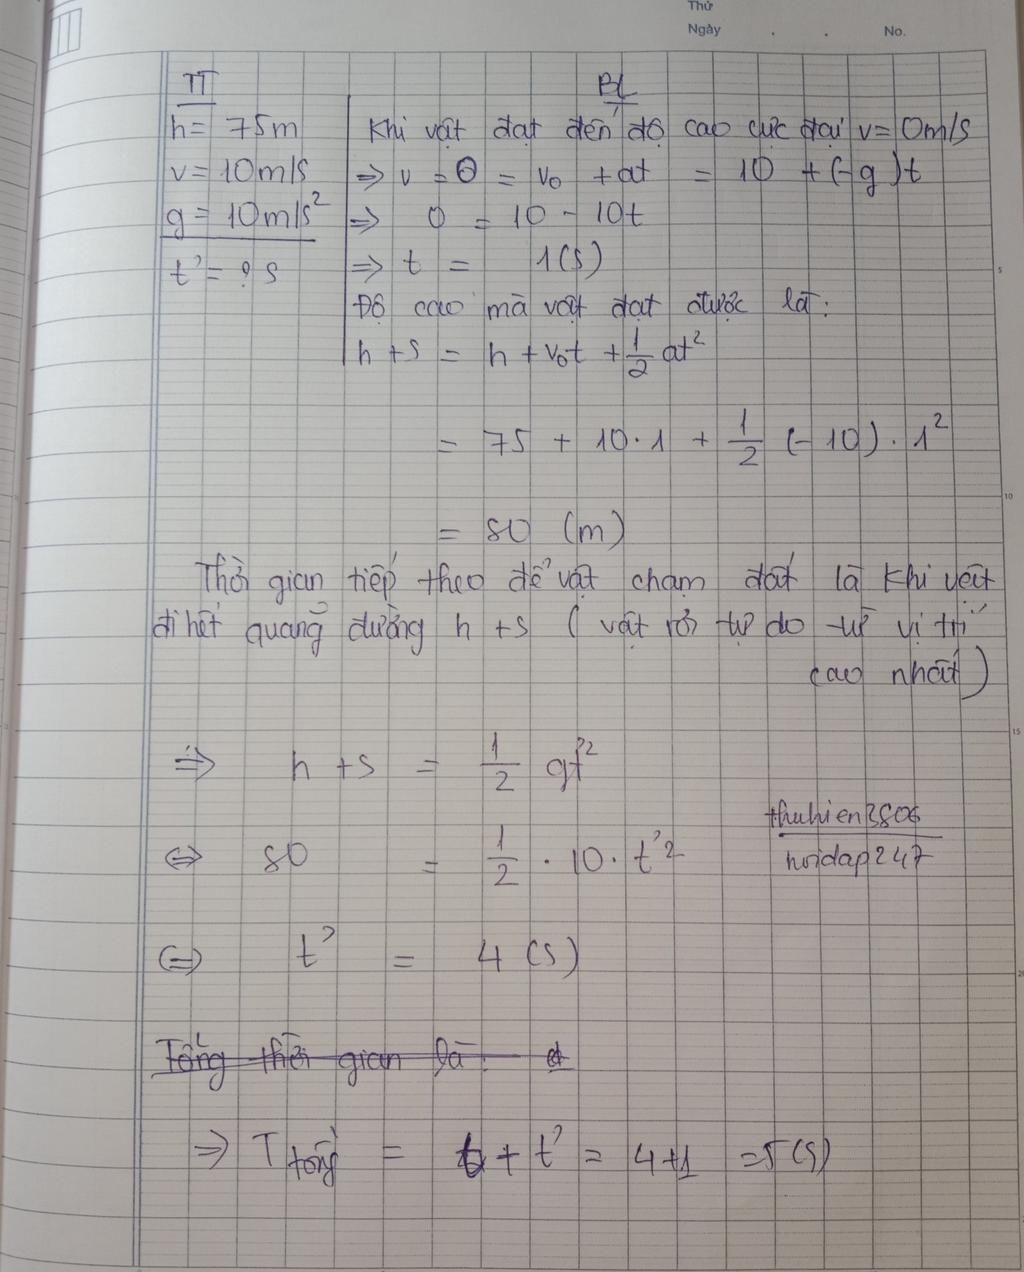 Thứ
Ngày . . No.
TT
BL
h = 75m
Khi vật đạt đến độ cao cực đại v = 0m/s
v = 10m/s
=> v = 0 = v₀ + at = 10 + (-g)t
g = 10m/s²
=> 0 = 10 - 10t
t' = ? s
=> t = 1(s)
Độ cao mà vật đạt được là:
h + s = h + v₀t + 1/2 at²
= 75 + 10.1 + 1/2 (-10).1²
= 80 (m)
Thời gian tiếp theo để vật chạm đất là khi vật
đi hết quãng đường h + s (vật rơi tự do từ vị trí
cao nhất)
=> h + s = 1/2 gt'²
thuhien3806
<=> 80 = 1/2 . 10. t'²
hoidap247
<=> t' = 4 (s)
Tổng thời gian là:
=> T tổng = t + t' = 4+1 = 5(s)
5
10
15
20